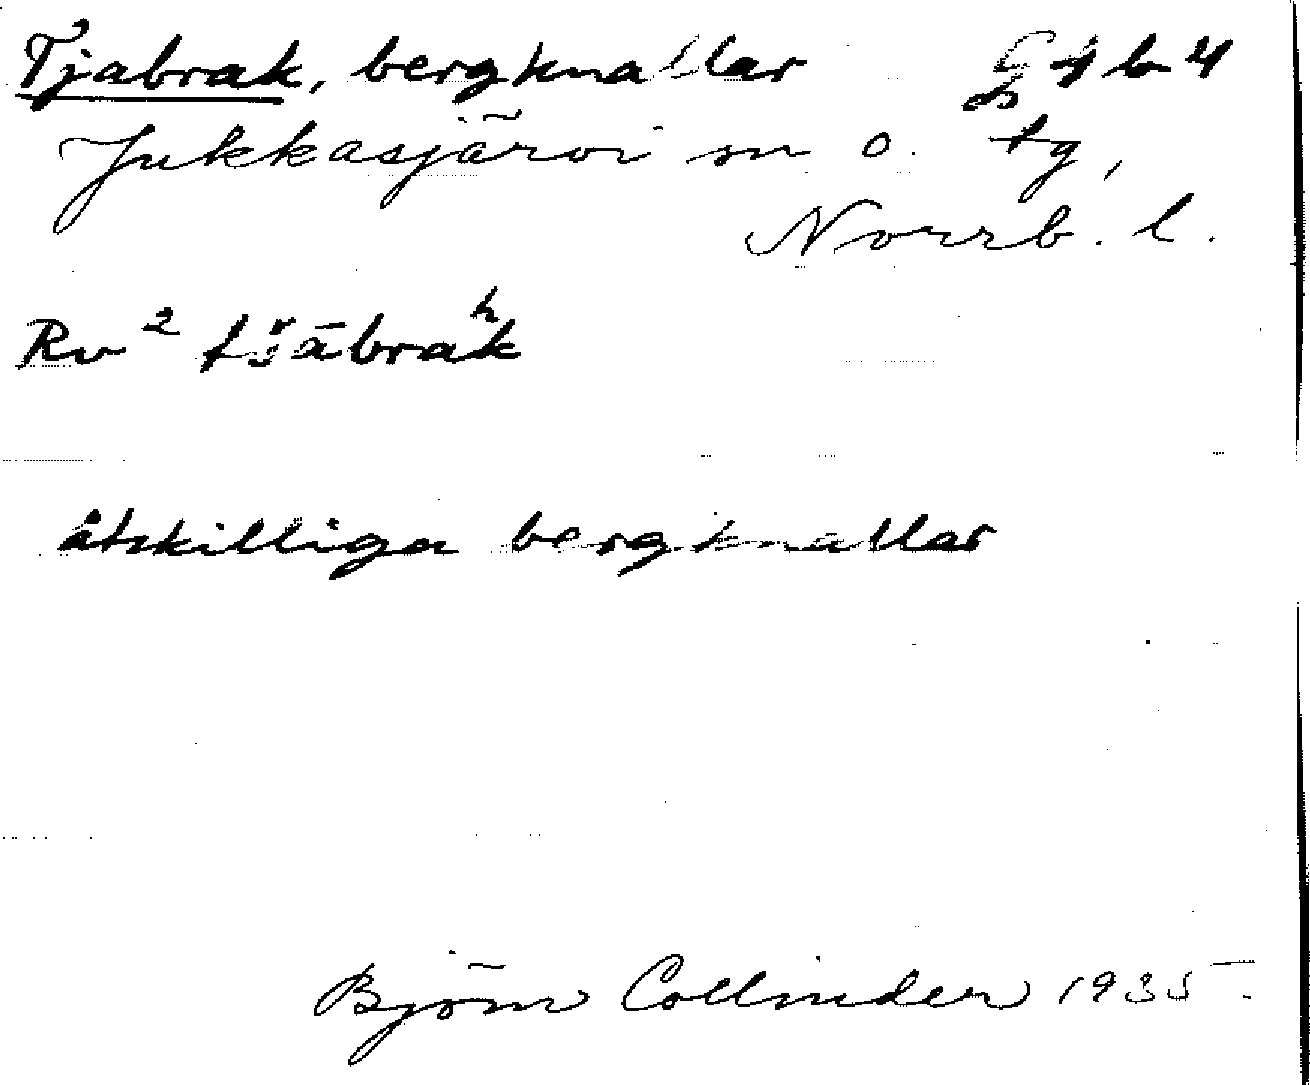 Tjabrak, bergknallar
Jukkasjärvi sn o. tg,
Norrb. l.
Rv² tšābraʰk
åtskilliga bergknallar
Björn Collinder 1935